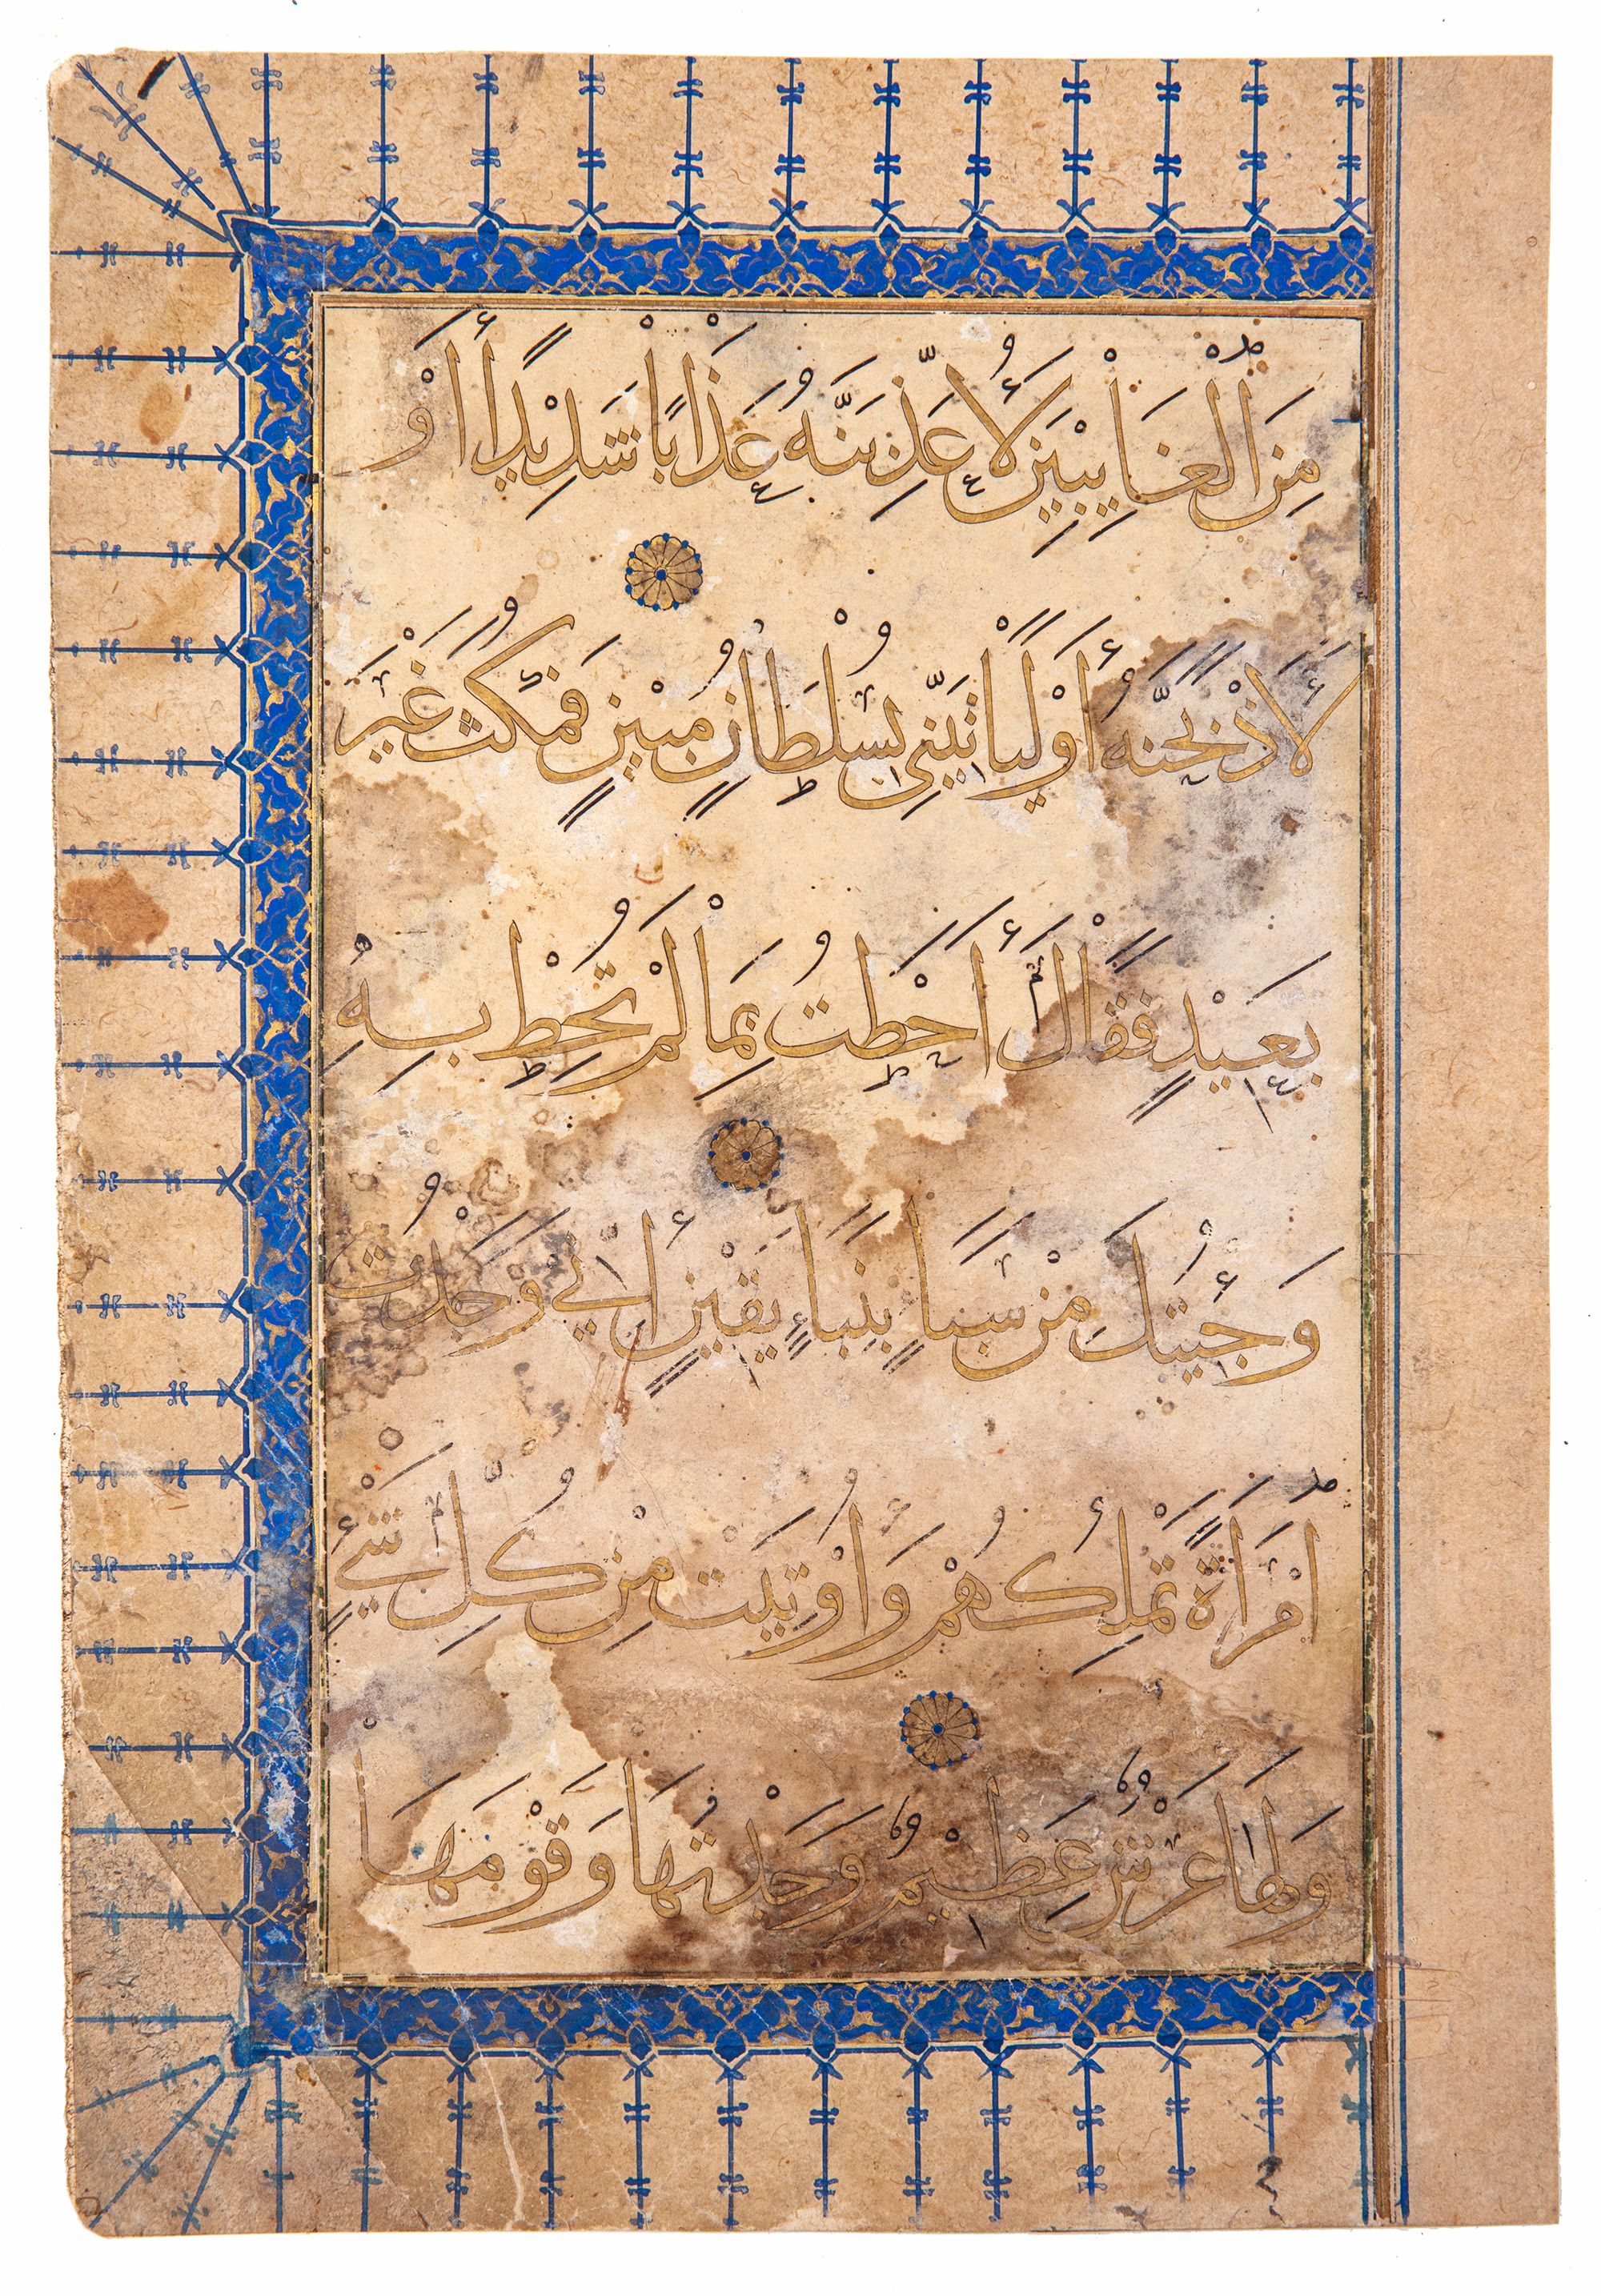 مِنَ الْغَايِبِينَ لَأُعَذِّبَنَّهُ عَذَابًا شَدِيدًا أَوْ
لَأَذْبَحَنَّهُ أَوْ لَيَأْتِيَنِّي بِسُلْطَانٍ مُبِينٍ فَمَكُثَ غَيْرَ
بَعِيدٍ فَقَالَ أَحَطْتُ بِمَا لَمْ تُحِطْ بِهِ
وَجِئْتُكَ مِنْ سَبَإٍ بِنَبَإٍ يَقِينٍ إِنِّي وَجَدْتُ
امْرَأَةً تَمْلِكُهُمْ وَأُوتِيَتْ مِنْ كُلِّ شَيْءٍ
وَلَهَا عَرْشٌ عَظِيمٌ وَجَدْتُهَا وَقَوْمَهَا